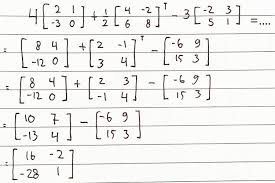 4[2 1; -3 0] + 1/2[4 -2; 6 8]ᵀ - 3[-2 3; 5 1] = ....
= [8 4; -12 0] + [2 -1; 3 4]ᵀ - [-6 9; 15 3]
= [8 4; -12 0] + [2 3; -1 4] - [-6 9; 15 3]
= [10 7; -13 4] - [-6 9; 15 3]
= [16 -2; -28 1]